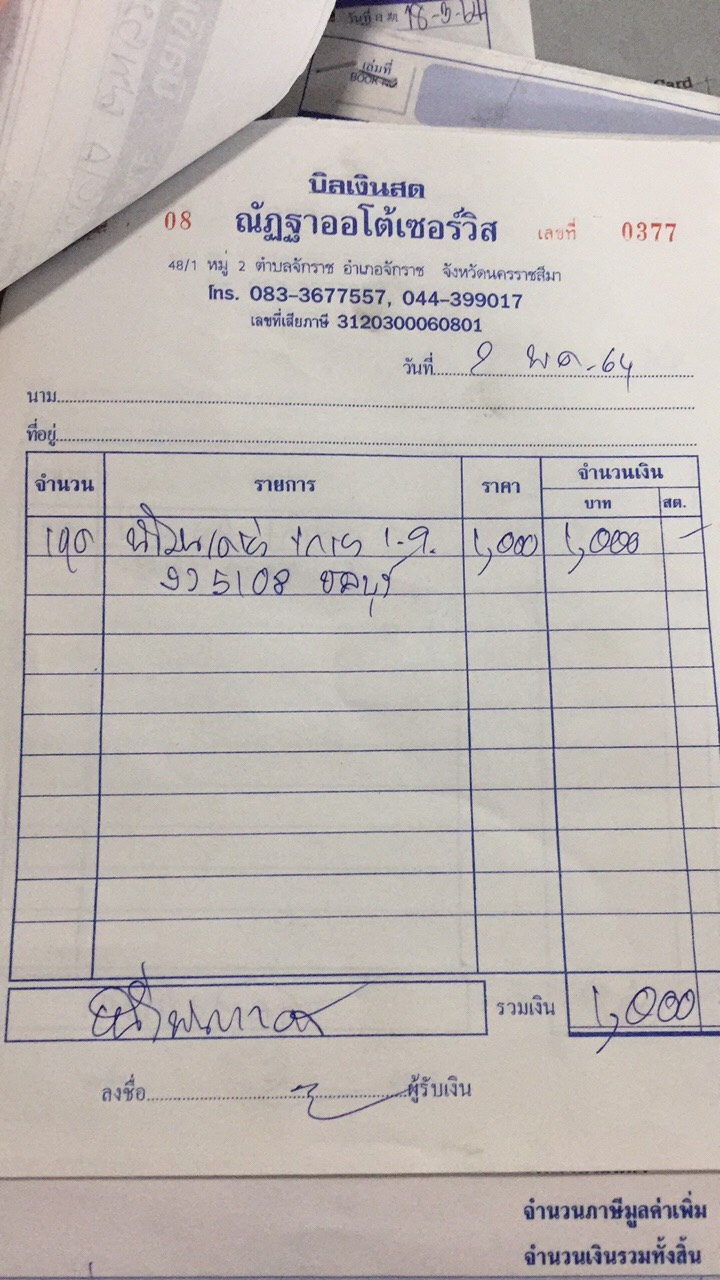 วันที่ 18-5-64
เล่มที่
BOOK NO.
Card
บิลเงินสด
08 ณัฏฐาออโต้เซอร์วิส เลขที่ 0377
48/1 หมู่ 2 ตำบลจักราช อำเภอจักราช จังหวัดนครราชสีมา
โทร. 083-3677557, 044-399017
เลขที่เสียภาษี 3120300060801
วันที่ 2 พ.ค.-64
นาม
ที่อยู่
จำนวน รายการ ราคา จำนวนเงิน
บาท สต.
1,000 1,000 -
5108 ชลบุรี
หนึ่งพันบาท รวมเงิน 1,000
ลงชื่อ ผู้รับเงิน
จำนวนภาษีมูลค่าเพิ่ม
จำนวนเงินรวมทั้งสิ้น